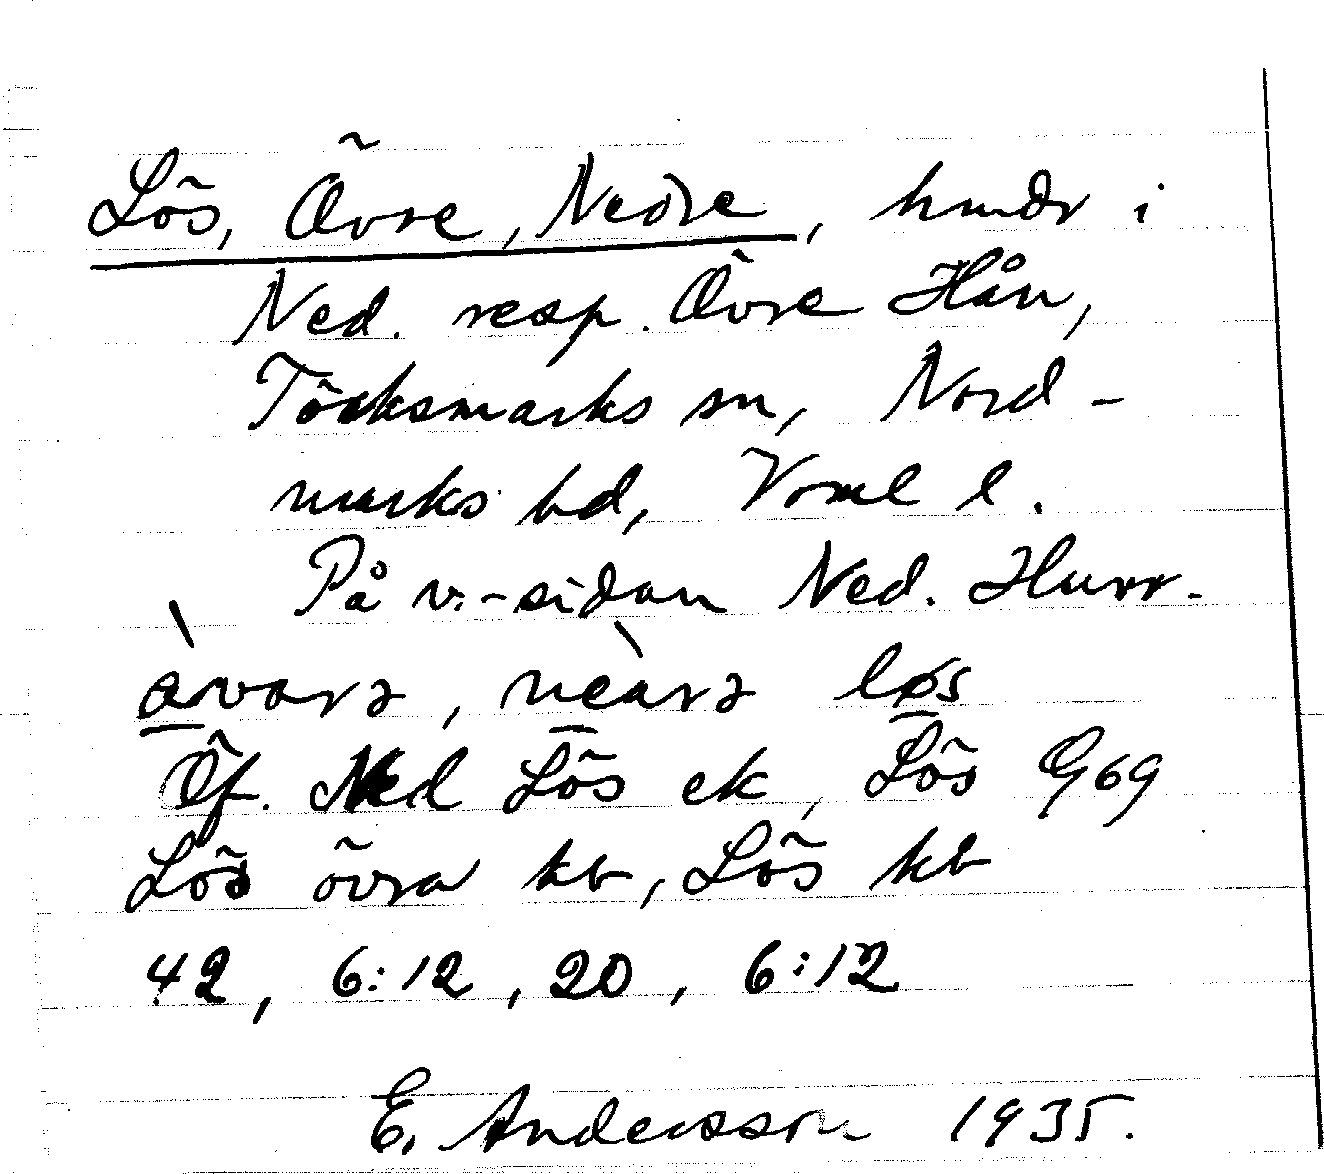 Lös, Övre, Nedre, hmdr i
Ned. resp. Övre Hån,
Töcksmarks sn, Nord-
marks hd, Vrml l.
På v.-sidan Ned. Hurr.
løs
Öf. Ned Lös ek, Lös G69
Lös övra kb, Lös kb
42, 6:12, 20, 6:12
E. Andersson 1935.